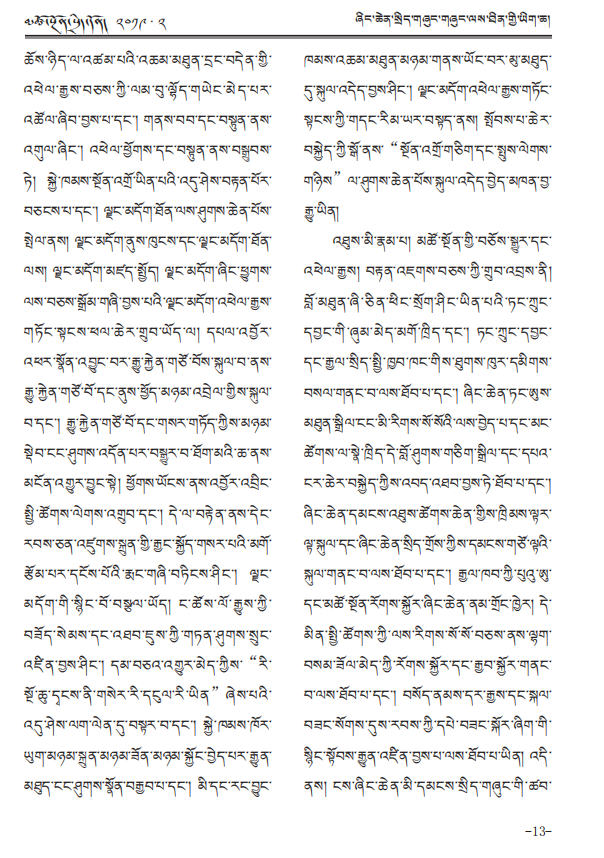 ཞིང་ཆེན་སྲིད་གཞུང་གཞུང་ལས་ཐིན་གྱི་ཡིག་ཆ།
༢༠༡༩·༢
ཆོས་ཉིད་ལ་འཚམ་པའི་འཆམ་མཐུན་དྲང་བདེན་གྱི་
འཕེལ་རྒྱས་བཅས་ཀྱི་ལམ་བུ་ལྷོད་གཡེང་མེད་པར་
འཚོལ་ཞིབ་བྱས་པ་དང་། གནས་བབ་དང་བསྟུན་ནས་
འགུལ་ཞིང་། འཕེལ་ཕྱོགས་དང་བསྟུན་ནས་བསྒྲུབས་
ཏེ། སྐྱེ་ཁམས་སྔོན་འགྲོ་ཡིན་པའི་འདུ་ཤེས་བརྟན་པོར་
བཅངས་པ་དང་། ལྗང་མདོག་ཐོན་ལས་ཤུགས་ཆེན་པོས་
སྤེལ་ནས། ལྗང་མདོག་ནུས་ཁུངས་དང་ལྗང་མདོག་ཐོན་
ལས། ལྗང་མདོག་མཛད་སྤྱོད། ལྗང་མདོག་ཞིང་ཕྱུགས་
ལས་བཅས་སྒྲོམ་གཞི་བྱས་པའི་ལྗང་མདོག་འཕེལ་རྒྱས་
གཏོང་སྟངས་ཕལ་ཆེར་གྲུབ་ཡོད་ལ། དཔལ་འབྱོར་
འཕར་སྣོན་འབྱུང་བར་རྒྱུ་རྐྱེན་གཙོ་བོས་སྐུལ་བ་ནས་
རྒྱུ་རྐྱེན་གཙོ་བོ་དང་ནུས་ཕྱོད་མཉམ་འབྲེལ་གྱིས་སྐུལ་
བ་དང་། རྒྱུ་རྐྱེན་གཙོ་བོ་དང་གསར་གཏོད་ཀྱིས་མཉམ་
སྡེབ་ངང་ཤུགས་འདོན་པར་བསྒྱུར་བ་ཐོག་མའི་ཆ་ནས་
མངོན་འགྱུར་བྱུང་སྟེ། ཕྱོགས་ཡོངས་ནས་འབྱོར་འབྲིང་
སྤྱི་ཚོགས་ལེགས་འགྲུབ་དང་། དེ་ལ་བརྟེན་ནས་དེང་
རབས་ཅན་འཛུགས་སྐྲུན་གྱི་རྒྱང་སྐྱོད་གསར་པའི་མགོ་
རྩོམ་པར་དངོས་པོའི་རྨང་གཞི་བཏིངས་ཤིང་། ལྗང་
མདོག་གི་སྙིང་བོ་བསྩལ་ཡོད། ང་ཚོས་ལོ་རྒྱུས་ཀྱི་
བཟོད་སེམས་དང་འཐབ་ཇུས་ཀྱི་གཏན་ཤུགས་སྲུང་
འཛིན་བྱས་ཤིང་། དམ་བཅའ་འགྱུར་མེད་ཀྱིས་“རི་
སྔོ་ཆུ་དྭངས་ནི་གསེར་རི་དངུལ་རི་ཡིན”ཞེས་པའི་
འདུ་ཤེས་ལག་ལེན་དུ་བསྟར་བ་དང་། སྐྱེ་ཁམས་ཁོར་
ཡུག་མཉམ་སྐྲུན་མཉམ་ཟོན་མཉམ་སྐྱོང་བྱེད་པར་རྒྱུན་
མཐུད་ངང་ཤུགས་སྣོན་བརྒྱབ་པ་དང་། མི་དང་རང་བྱུང་
ཁམས་འཆམ་མཐུན་མཉམ་གནས་ཡོང་བར་མུ་མཐུད་
དུ་སྐུལ་འདེད་བྱས་ཤིང་། ལྗང་མདོག་འཕེལ་རྒྱས་གཏོང་
སྟངས་ཀྱི་གདང་རིམ་ཡར་བསྟད་ནས། སྤོབས་པ་ཆེར་
བསྐྱེད་ཀྱི་སྒོ་ནས་“སྔོན་འགྲོ་གཅིག་དང་སྤུས་ལེགས་
གཉིས”ལ་ཤུགས་ཆེན་པོས་སྐུལ་འདེད་བྱེད་མཁན་བྱ་
རྒྱུ་ཡིན།
འཐུས་མི་རྣམ་པ། མཚོ་སྔོན་གྱི་བཅོས་སྒྱུར་དང་
འཕེལ་རྒྱས། བརྟན་འཇགས་བཅས་ཀྱི་གྲུབ་འབྲས་ནི།
བློ་མཐུན་ཞི་ཅིན་ཕིང་སྲོག་ཤིང་ཡིན་པའི་ཏང་ཀྲུང་
དབྱང་གི་ཞུམ་མེད་མགོ་ཁྲིད་དང་། ཏང་ཀྲུང་དབྱང་
དང་རྒྱལ་སྲིད་སྤྱི་ཁྱབ་ཁང་གིས་ཐུགས་ཁུར་དམིགས་
བསལ་གནང་བ་ལས་ཐོབ་པ་དང་། ཞིང་ཆེན་ཏང་ཨུས་
མཐུན་སྒྲིལ་ངང་མི་རིགས་སོ་སོའི་ལས་བྱེད་པ་དང་མང་
ཚོགས་ལ་སྣེ་ཁྲིད་དེ་བློ་ཤུགས་གཅིག་སྒྲིལ་དང་དཔའ་
ངར་ཆེར་བསྐྱེད་ཀྱིས་འབད་འཐབ་བྱས་ཏེ་ཐོབ་པ་དང་།
ཞིང་ཆེན་དམངས་འཐུས་ཚོགས་ཆེན་གྱིས་ཁྲིམས་ལྟར་
ལྟ་སྐུལ་དང་ཞིང་ཆེན་སྲིད་གྲོས་ཀྱིས་དམངས་གཙོ་ལྟའི་
སྐུལ་གནང་བ་ལས་ཐོབ་པ་དང་། རྒྱལ་ཁབ་ཀྱི་པུའུ་ཨུ་
དང་མཚོ་སྔོན་རོགས་སྐྱོར་ཞིང་ཆེན་ནམ་གྲོང་ཁྱེར། དེ་
མིན་སྤྱི་ཚོགས་ཀྱི་ལས་རིགས་སོ་སོ་བཅས་ནས་ལྷག་
བསམ་ཟོལ་མེད་ཀྱི་རོགས་སྐྱོར་དང་རྒྱབ་སྐྱོར་གནང་
བ་ལས་ཐོབ་པ་དང་། བསོད་ནམས་དར་རྒྱས་དང་སྐལ་
བཟང་སོགས་དུས་རབས་ཀྱི་དཔེ་བཟང་སྐོར་ཞིག་གི་
སྙིང་སྟོབས་རྒྱུན་འཛིན་བྱས་པ་ལས་ཐོབ་པ་ཡིན། འདི་
ནས། ངས་ཞིང་ཆེན་མི་དམངས་སྲིད་གཞུང་གི་ཚབ་
-13-